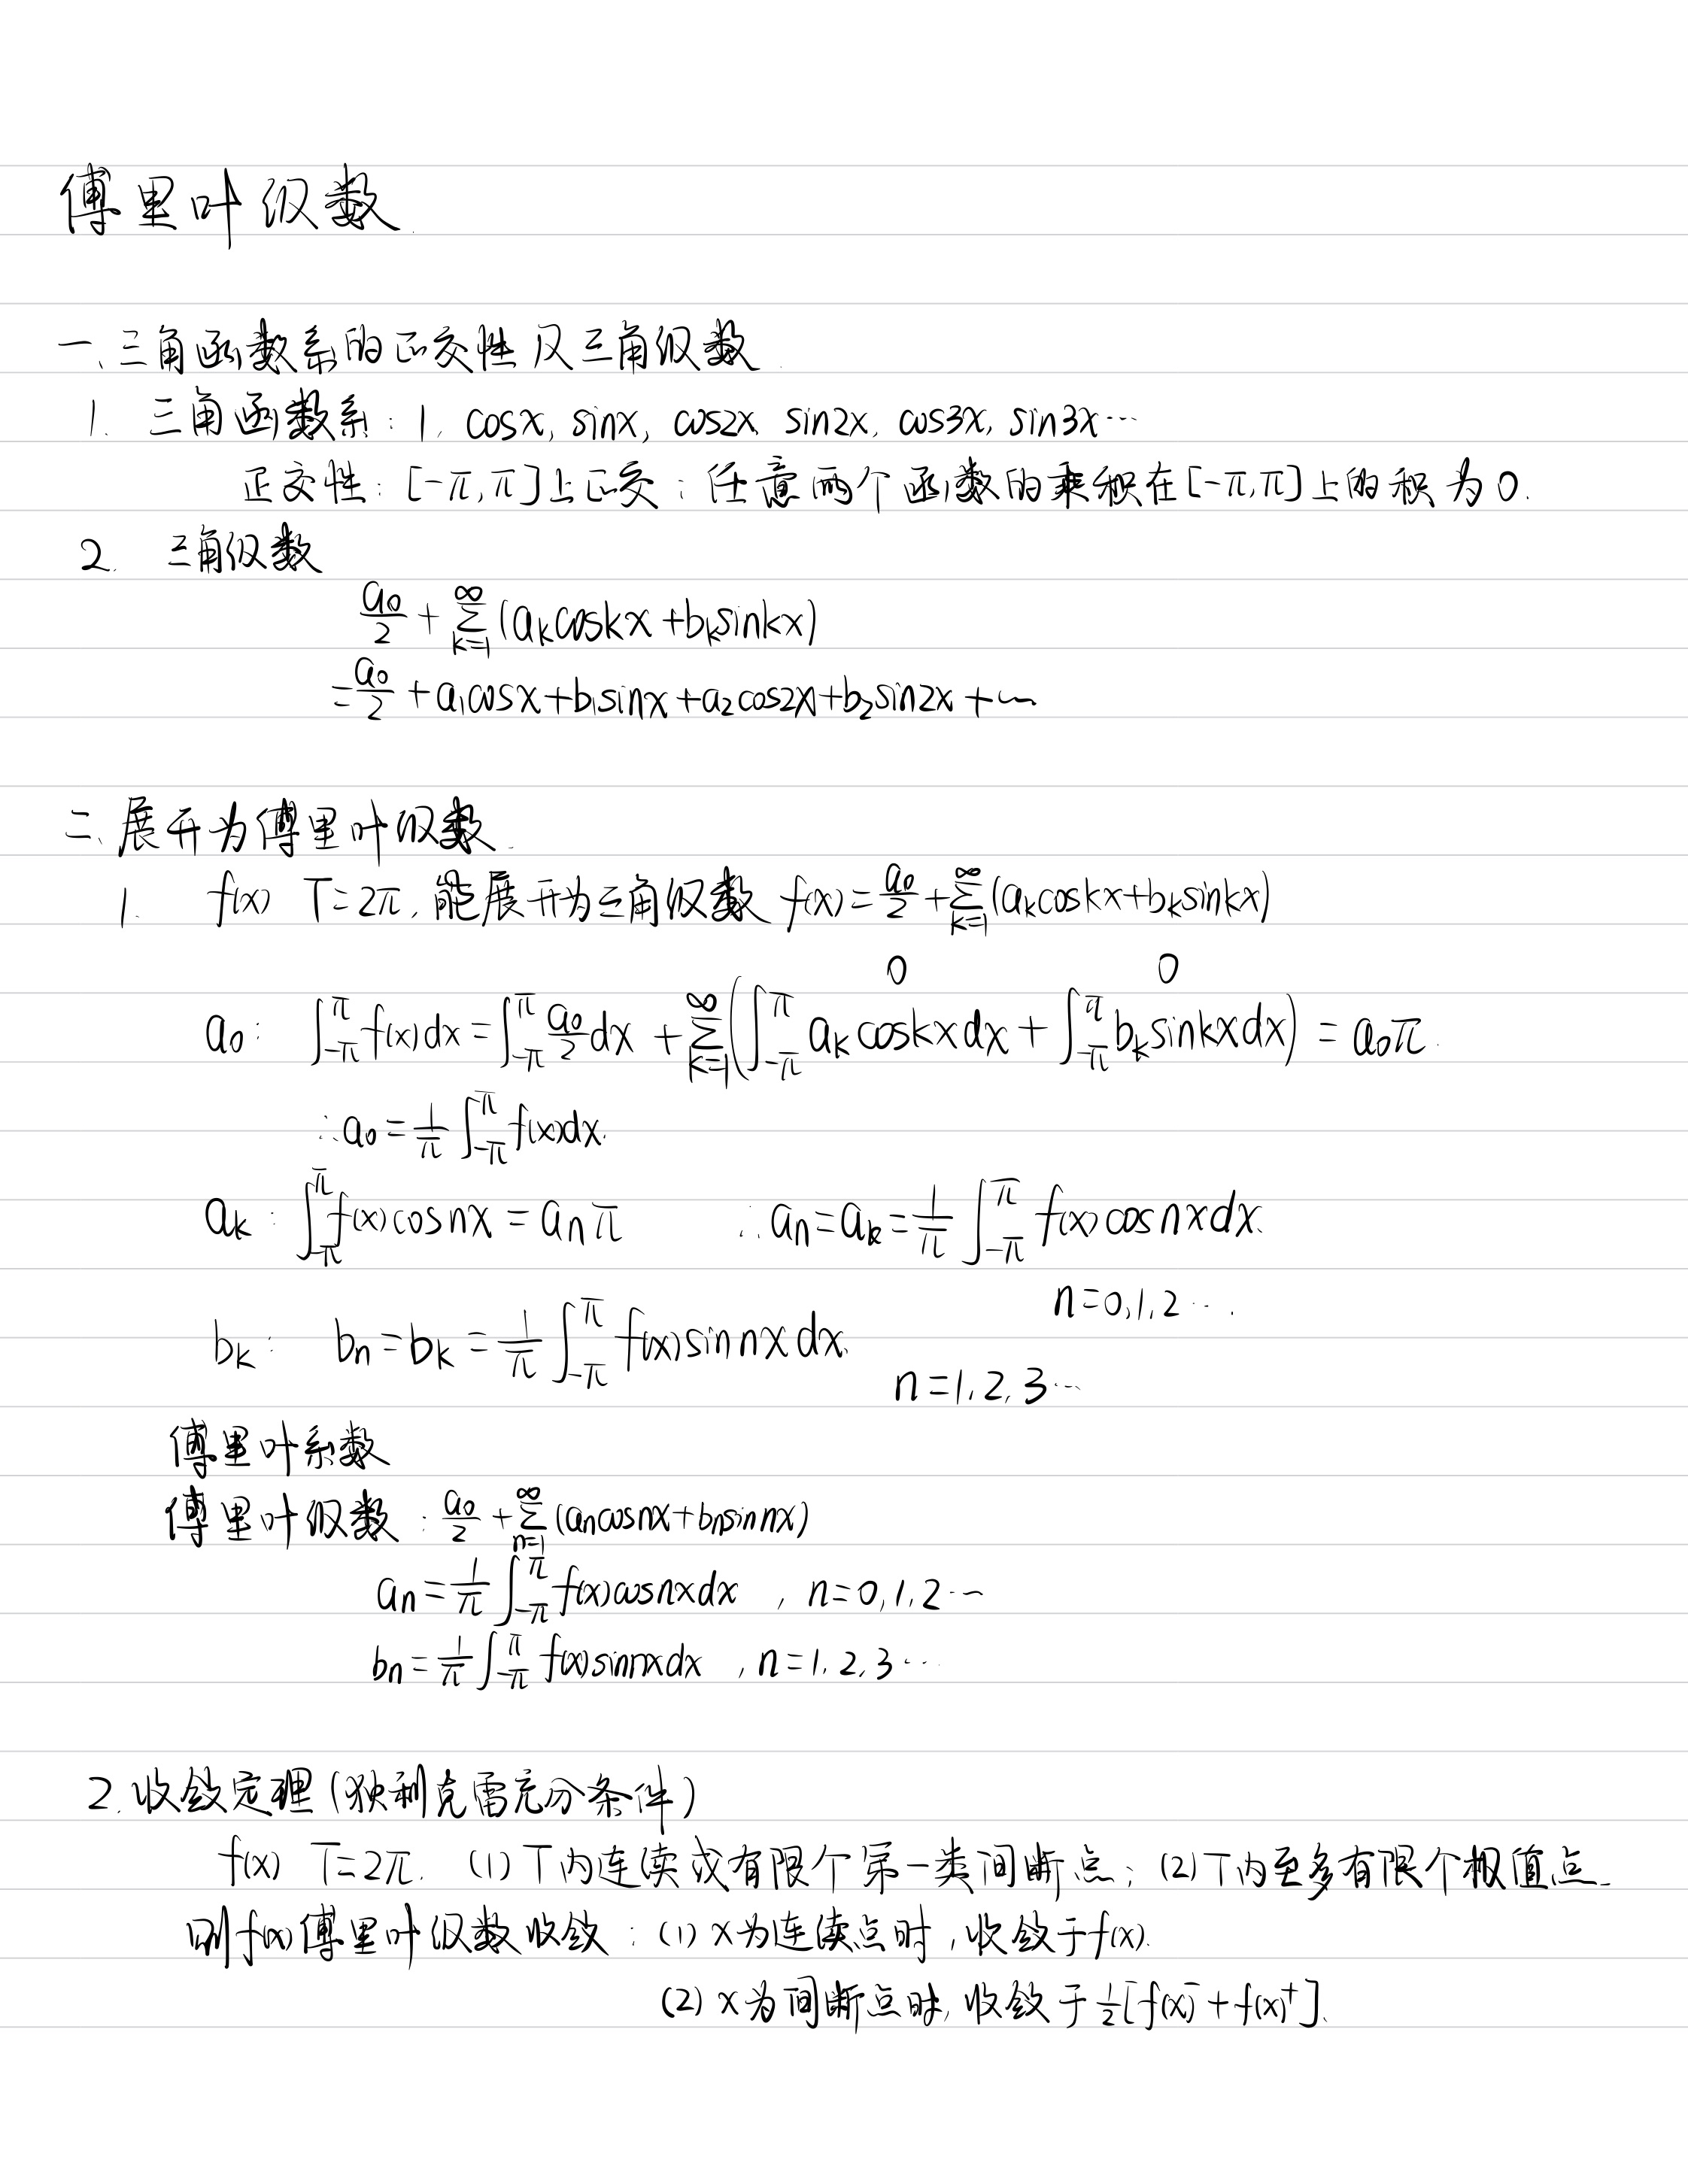 傅里叶级数.
一、三角函数系的正交性及三角级数.
1. 三角函数系: 1, cosx, sinx, cos2x, sin2x, cos3x, sin3x…
正交性: [-π,π]上正交: 任意两个函数的乘积在[-π,π]上的积为0.
2. 三角级数
a₀/2 + ∑_{k=1}^{∞} (aₖcoskx + bₖsinkx)
= a₀/2 + a₁cosx + b₁sinx + a₂cos2x + b₂sin2x + …
二、展开为傅里叶级数.
1. f(x) T=2π, 能展开为三角级数 f(x) = a₀/2 + ∑_{k=1}^{∞} (aₖcoskx + bₖsinkx)
0 0
a₀: ∫_{-π}^{π} f(x)dx = ∫_{-π}^{π} a₀/2 dx + ∑_{k=1}^{∞} (∫_{-π}^{π} aₖ coskx dx + ∫_{-π}^{π} bₖ sinkx dx) = a₀π.
∴ a₀ = 1/π ∫_{-π}^{π} f(x)dx.
aₖ: ∫_{-π}^{π} f(x)cosnx = aₙπ ∴ aₙ = aₖ = 1/π ∫_{-π}^{π} f(x)cosnxdx.
n=0,1,2…
bₖ: bₙ = bₖ = 1/π ∫_{-π}^{π} f(x)sinnxdx.
n=1,2,3…
傅里叶系数
傅里叶级数: a₀/2 + ∑_{n=1}^{∞} (aₙcosnx + bₙsinnx)
aₙ = 1/π ∫_{-π}^{π} f(x)cosnxdx , n=0,1,2…
bₙ = 1/π ∫_{-π}^{π} f(x)sinnxdx , n=1,2,3…
2. 收敛定理(狄利克雷充分条件)
f(x) T=2π. (1) T内连续或有限个第一类间断点; (2) T内至多有限个极值点.
则f(x)傅里叶级数收敛: (1) x为连续点时, 收敛于f(x).
(2) x为间断点时, 收敛于 1/2[f(x)⁻ + f(x)⁺].